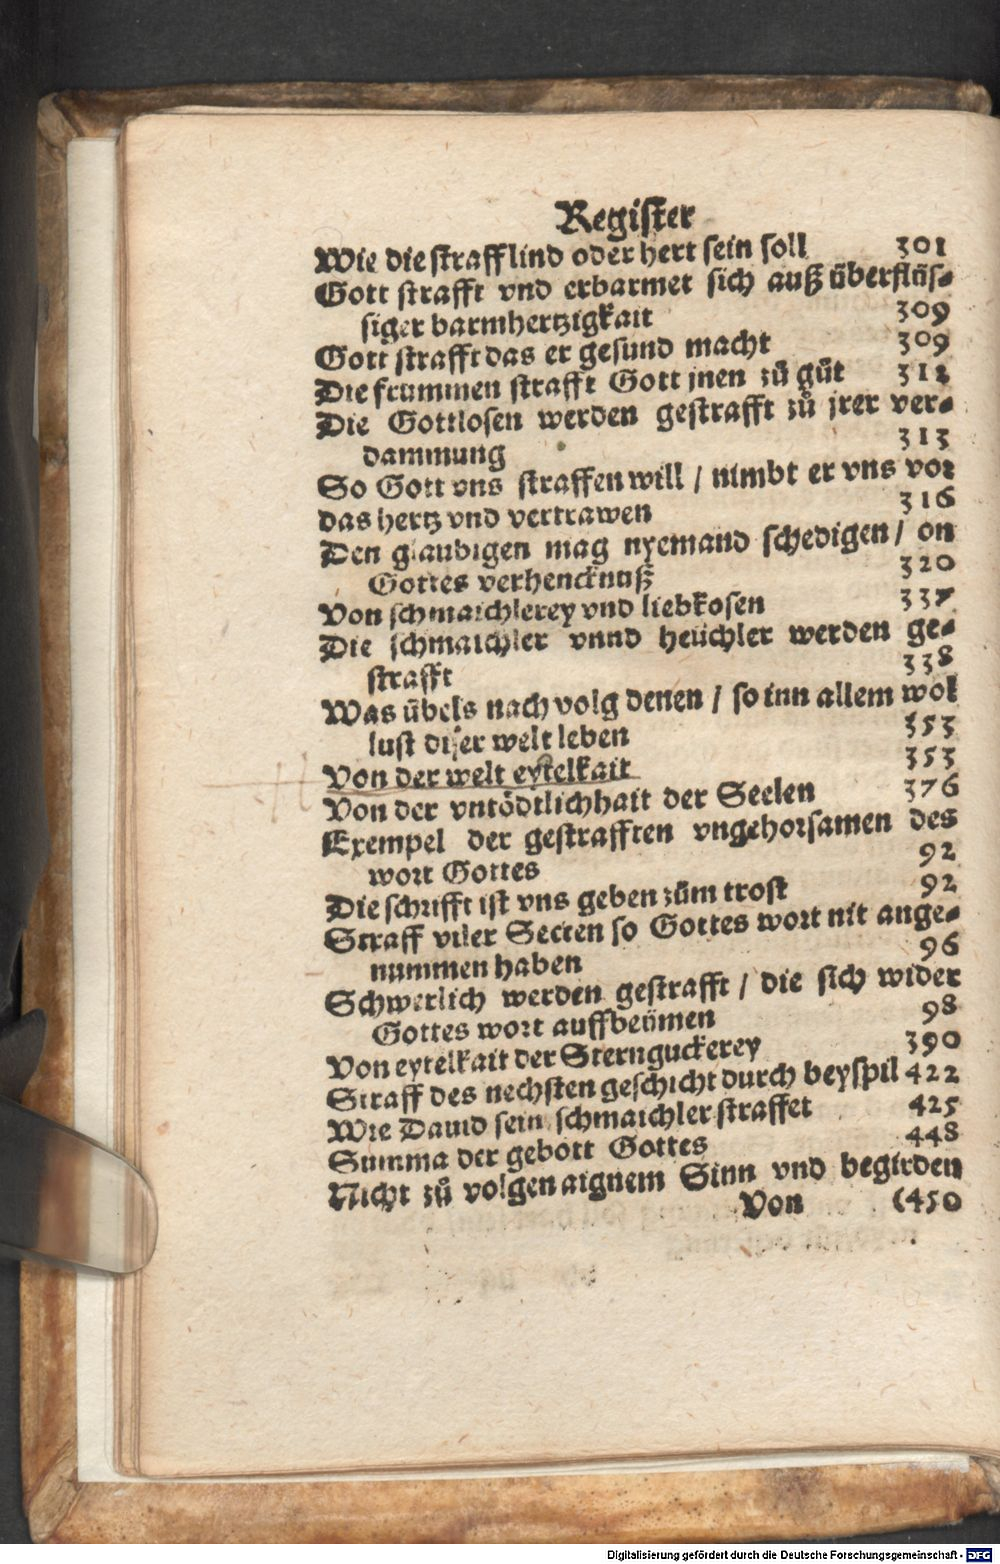 Register
Wie die straff lind oder hert sein soll 301
Gott strafft vnd erbarmet sich auß überflüs-
siger barmhertzigkait 309
Gott strafft das er gesund macht 309
Die frummen strafft Gott jnen zů gůt 312
Die Gottlosen werden gestrafft zů jrer ver-
dammung 313
So Gott vns straffen will / nimbt er vns vor
das hertz vnd vertrawen 316
Den glaubigen mag nyemand schedigen / on
Gottes verhencknuß 320
Von schmaichlerey vnd liebkosen 337
Die schmaichler vnnd heüchler werden ge-
strafft 338
Was übels nach volg denen / so inn allem wol
lust diser welt leben 353
Von der welt eytelkait 353
Von der vntödtlichhait der Seelen 376
Exempel der gestrafften vngehorsamen des
wort Gottes 92
Die schrifft ist vns geben zům trost 92
Straff viler Secten so Gottes wort nit ange-
nummen haben 96
Schwerlich werden gestrafft / die sich wider
Gottes wort auffbeümen 98
Von eytelkait der Sternguckerey 390
Straff des nechsten geschicht durch beyspil 422
Wie Dauid sein schmaichler straffet 425
Summa der gebott Gottes 448
Nicht zů volgen aignem Sinn vnd begirden
Von (450
Digitalisierung gefördert durch die Deutsche Forschungsgemeinschaft - DFG